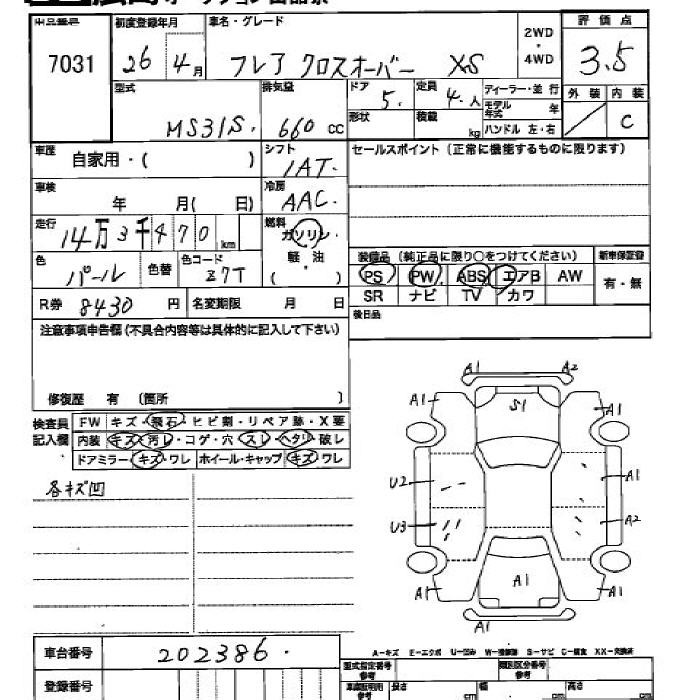 出品番号 初度登録年月 車名・グレード 2WD・4WD 評価点
7031 26年4月 フレア クロスオーバー XS 3.5
型式 排気量 ドア 定員 ディーラー・並行 外装 内装
MS31S. 660cc 5. 4.人 モデル年式 年 C
形状 積載 kg ハンドル 左・右
車歴 自家用・( ) シフト 1AT. セールスポイント（正常に機能するものに限ります）
車検 年 月( 日) 冷房 AAC.
走行 14万3千470km 燃料 ガソリン・軽・油 ( )
装備品（純正品に限り○をつけてください） 新車保証書
色 パール 色替 色コード Z7T
PS PW ABS エアB AW 有・無
SR ナビ TV カワ
R券 8430円 名変期限 月 日
後日品
注意事項申告欄（不具合内容等は具体的に記入して下さい）
修復歴 有 〔箇所 〕
検査員記入欄
FW キズ・飛石・ヒビ割・リペア跡・X要
内装 キズ・汚レ・コゲ・穴・スレ・ヘタリ・破レ
ドアミラー・キズ・ワレ ホイール・キャップ キズ・ワレ
各キズ凹
A1 A2
A1 S1 A1
U2 A1
U3 A2
A1 A1 A1
A1
A-キズ E-エクボ U-凹み W-補修跡 S-サビ C-腐食 XX-交換済
車台番号 202386.
型式指定番号 類別区分番号
登録番号
長さ cm 幅 cm 高さ cm